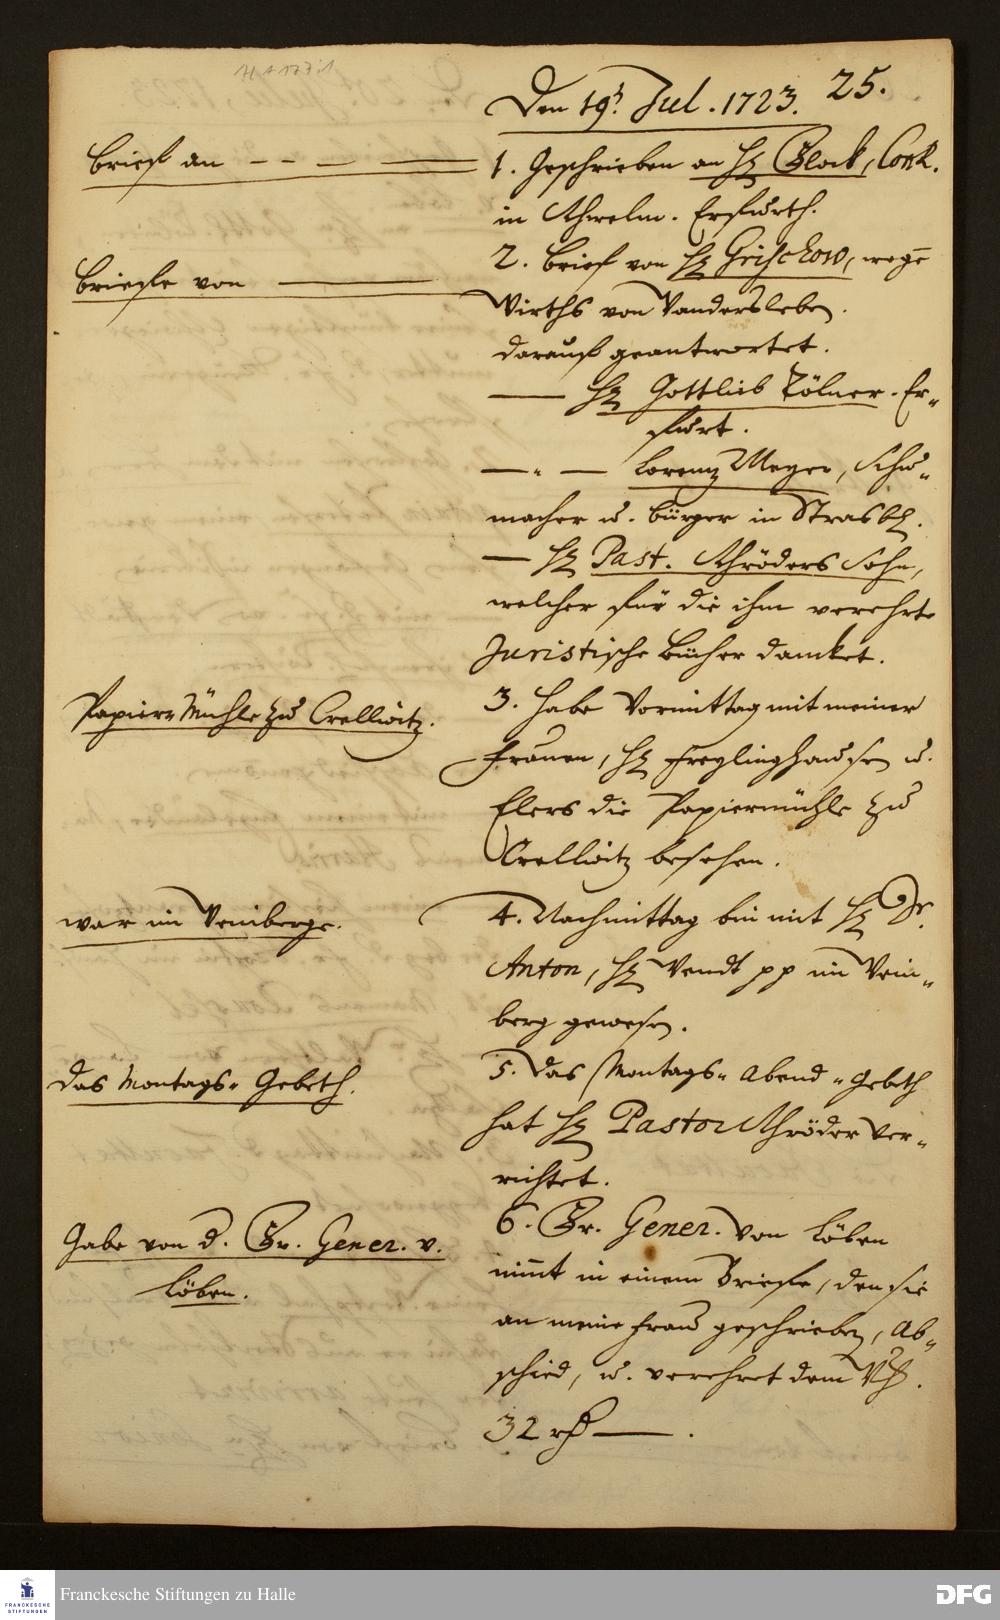 25.
Den 19. Jul. 1723.
Brief an
1. Geschrieben an H. Glock, ConR.
in Schwelm. Erfurth.
Briefe von
2. Brief von H. Grischow, wegē
Wirths von Wandersleben.
darauf geantwortet.
— H. Gottlieb Zölner. Er-
furt.
— " — Lorenz Meyer, Schu-
macher u. bürger in Strasb.
— H. Past. Schröders Sohn,
welcher für die ihm verehrte
Juristische Bücher dancket.
Papier-Mühle zu Cröllwitz.
3. Habe Vormittag mit meiner
Frauen, H. Freylinghausen u.
Elers die Papiermühle zu
Cröllwitz besehen.
war im Weinberge.
4. Nachmittag bin mit H. Dr.
Anton, H. Wendt pp im Wein-
berg gewesen.
Das Montags-Gebeth.
5. Das Montags-Abend-Gebeth
hat H. Pastor Schröder ver-
richtet.
Gabe von d. Fr. Gener. v.
Löben.
6. Fr. Gener. von Löben
nim̄t in einem Briefe, den sie
an meine Frau geschrieben, Ab-
schied, u. verehret dem WH.
32 rth —.
FRANCKESCHE
STIFTUNGEN
Franckesche Stiftungen zu Halle
DFG